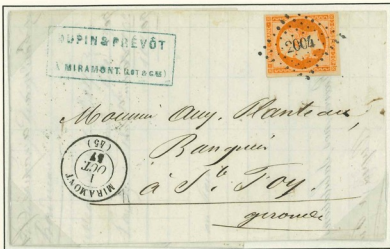 DUPIN & PRÉVÔT
MIRAMONT (LOT & G.NE)
2004
Monsieur Aug. Planteau
Banquier
à Ste Foy.
gironde
MIRAMONT
1
OCT.
(45)